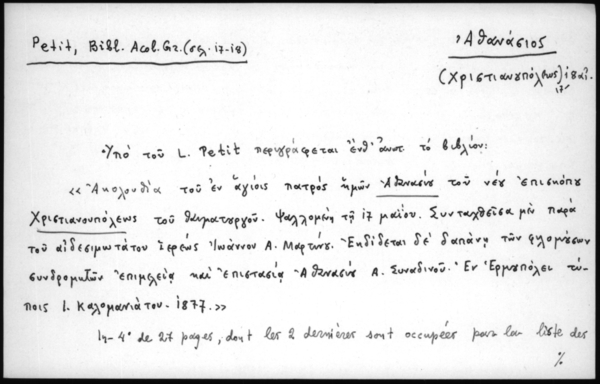 Petit, Bibl. Acol. Gr. (σελ. 17-18)
Ἀθανάσιος
(Χριστιανουπόλεως) 18 αἰ.
17
Ὑπό τοῦ L. Petit περιγράφεται ἔνθ' ἀνωτ τό βιβλίον:
«Ἀκολουθία τοῦ ἐν ἁγίοις πατρός ἡμῶν Ἀθανασίου τοῦ νέου ἐπισκόπου
Χριστιανουπόλεως τοῦ θαυματουργοῦ. Ψαλλομένη τῇ 17 μαΐου. Συνταχθεῖσα μέν παρά
τοῦ αἰδεσιμωτάτου ἱερέως Ἰωάννου Α. Μαρτίνου. Ἐκδίδεται δέ δαπάνῃ τῶν φιλομούσων
συνδρομητῶν ἐπιμελείᾳ καί ἐπιστασίᾳ Ἀθανασίου Α. Συναδινοῦ. Ἐν Ἑρμουπόλει τύ-
ποις Ι. Καλομανιάτου. 1877.»
In-4° de 27 pages, dont les 2 dernières sont occupées par la liste des
%